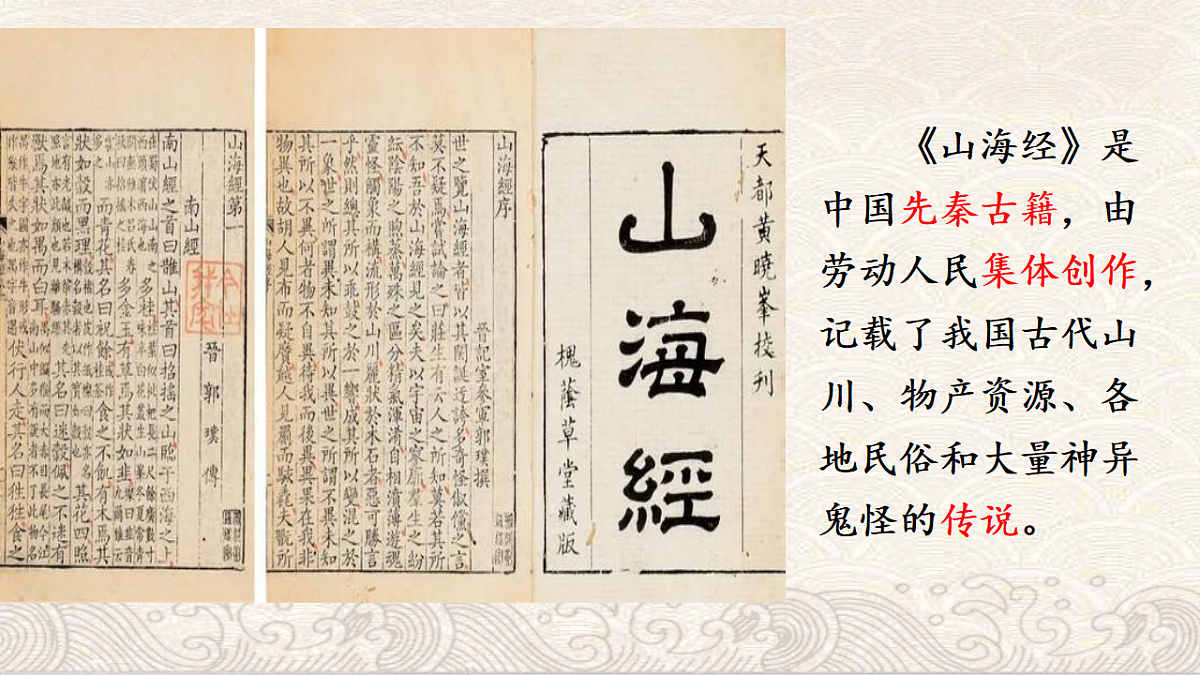 《山海经》是
中国先秦古籍，由
劳动人民集体创作，
记载了我国古代山
川、物产资源、各
地民俗和大量神异
鬼怪的传说。
天都黃曉峯校刊
山海經
槐蔭草堂藏版
山海經序
晉記室參軍郭璞撰
世之覽山海經者皆以其閎誕迂誇多奇怪俶儻之言
莫不疑焉嘗試論之曰莊生有云人之所知莫若其所
不知吾於山海經見之矣夫以宇宙之寥廓羣生之紛
紜陰陽之煦蒸萬殊之區分精氣渾淆自相濆薄遊魂
靈怪觸象而構流形於山川麗狀於木石者惡可勝言
乎然則總其所以乖鼓之於一響成其所以變混之於
一象世之所謂異未知其所以異世之所謂不異未知
其所以不異何者物不自異待我而後異異果在我非
物異也故胡人見布而疑黂越人見罽而駭毳夫翫所
山海經第一
南山經
晉 郭璞 傳
南山經之首曰䧿山其首曰招搖之山臨于西海之上
多桂
多金玉有草焉其狀如韭
而青花其名曰祝餘
食之不飢有木焉其
狀如榖而黑理
其花四照
其名曰迷榖佩之不迷有
獸焉其狀如禺而白耳
伏行人走其名曰狌狌食之